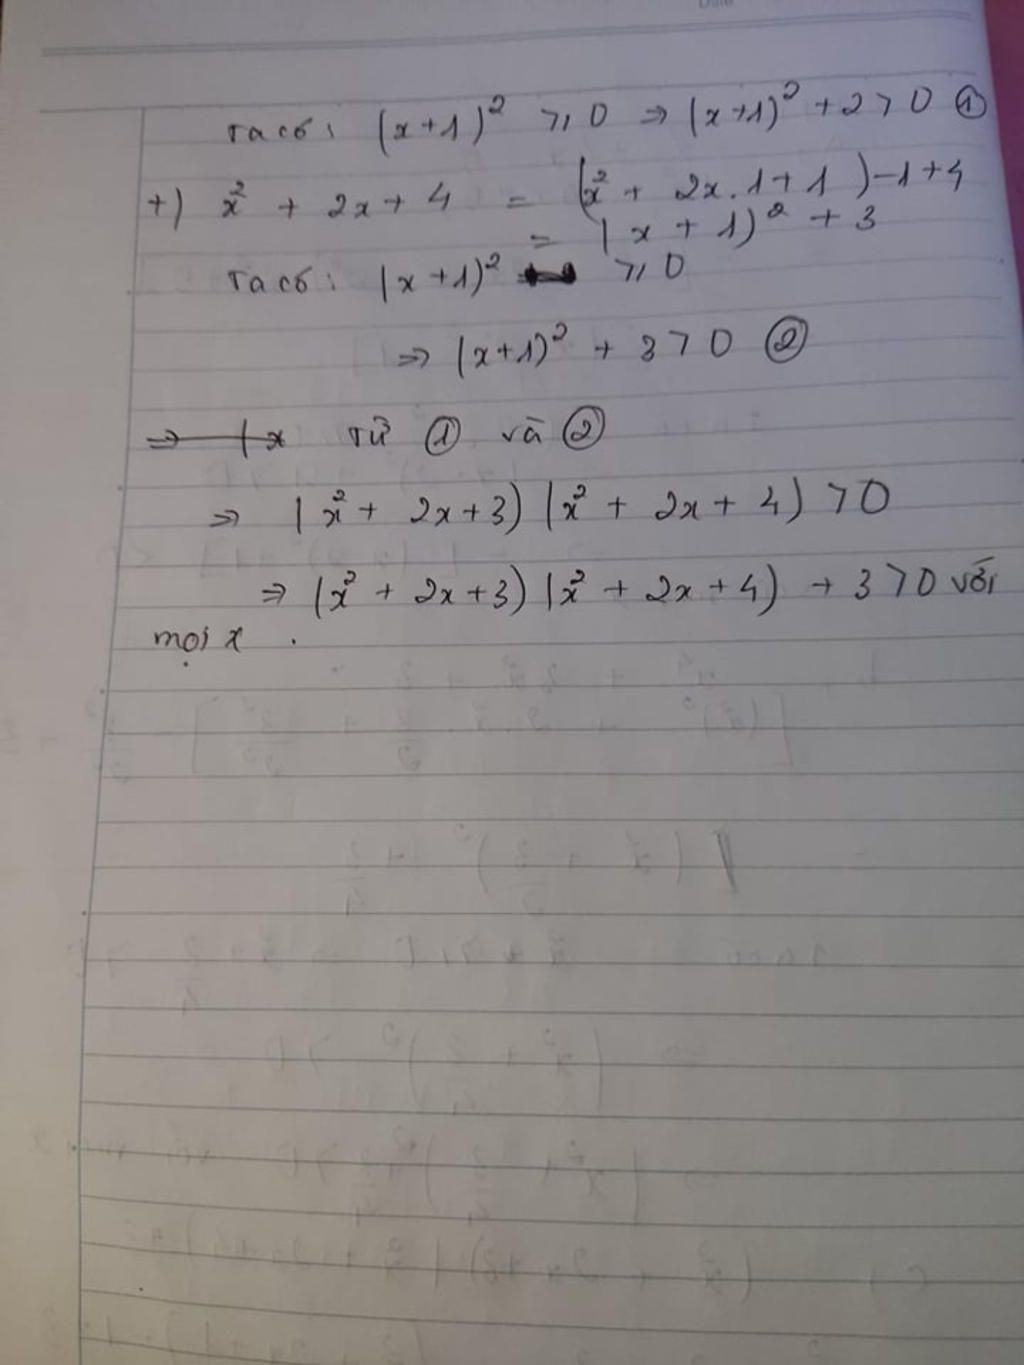 Ta có: (x+1)² ⩾ 0 ⇒ (x+1)² + 2 > 0 ①
+) x² + 2x + 4 = (x² + 2x.1 + 1) - 1 + 4
= (x + 1)² + 3
Ta có: (x+1)² ⩾ 0
⇒ (x+1)² + 3 > 0 ②
⇒ (x Từ ① và ②
⇒ (x² + 2x + 3) (x² + 2x + 4) > 0
⇒ (x² + 2x + 3) (x² + 2x + 4) + 3 > 0 với
mọi x .